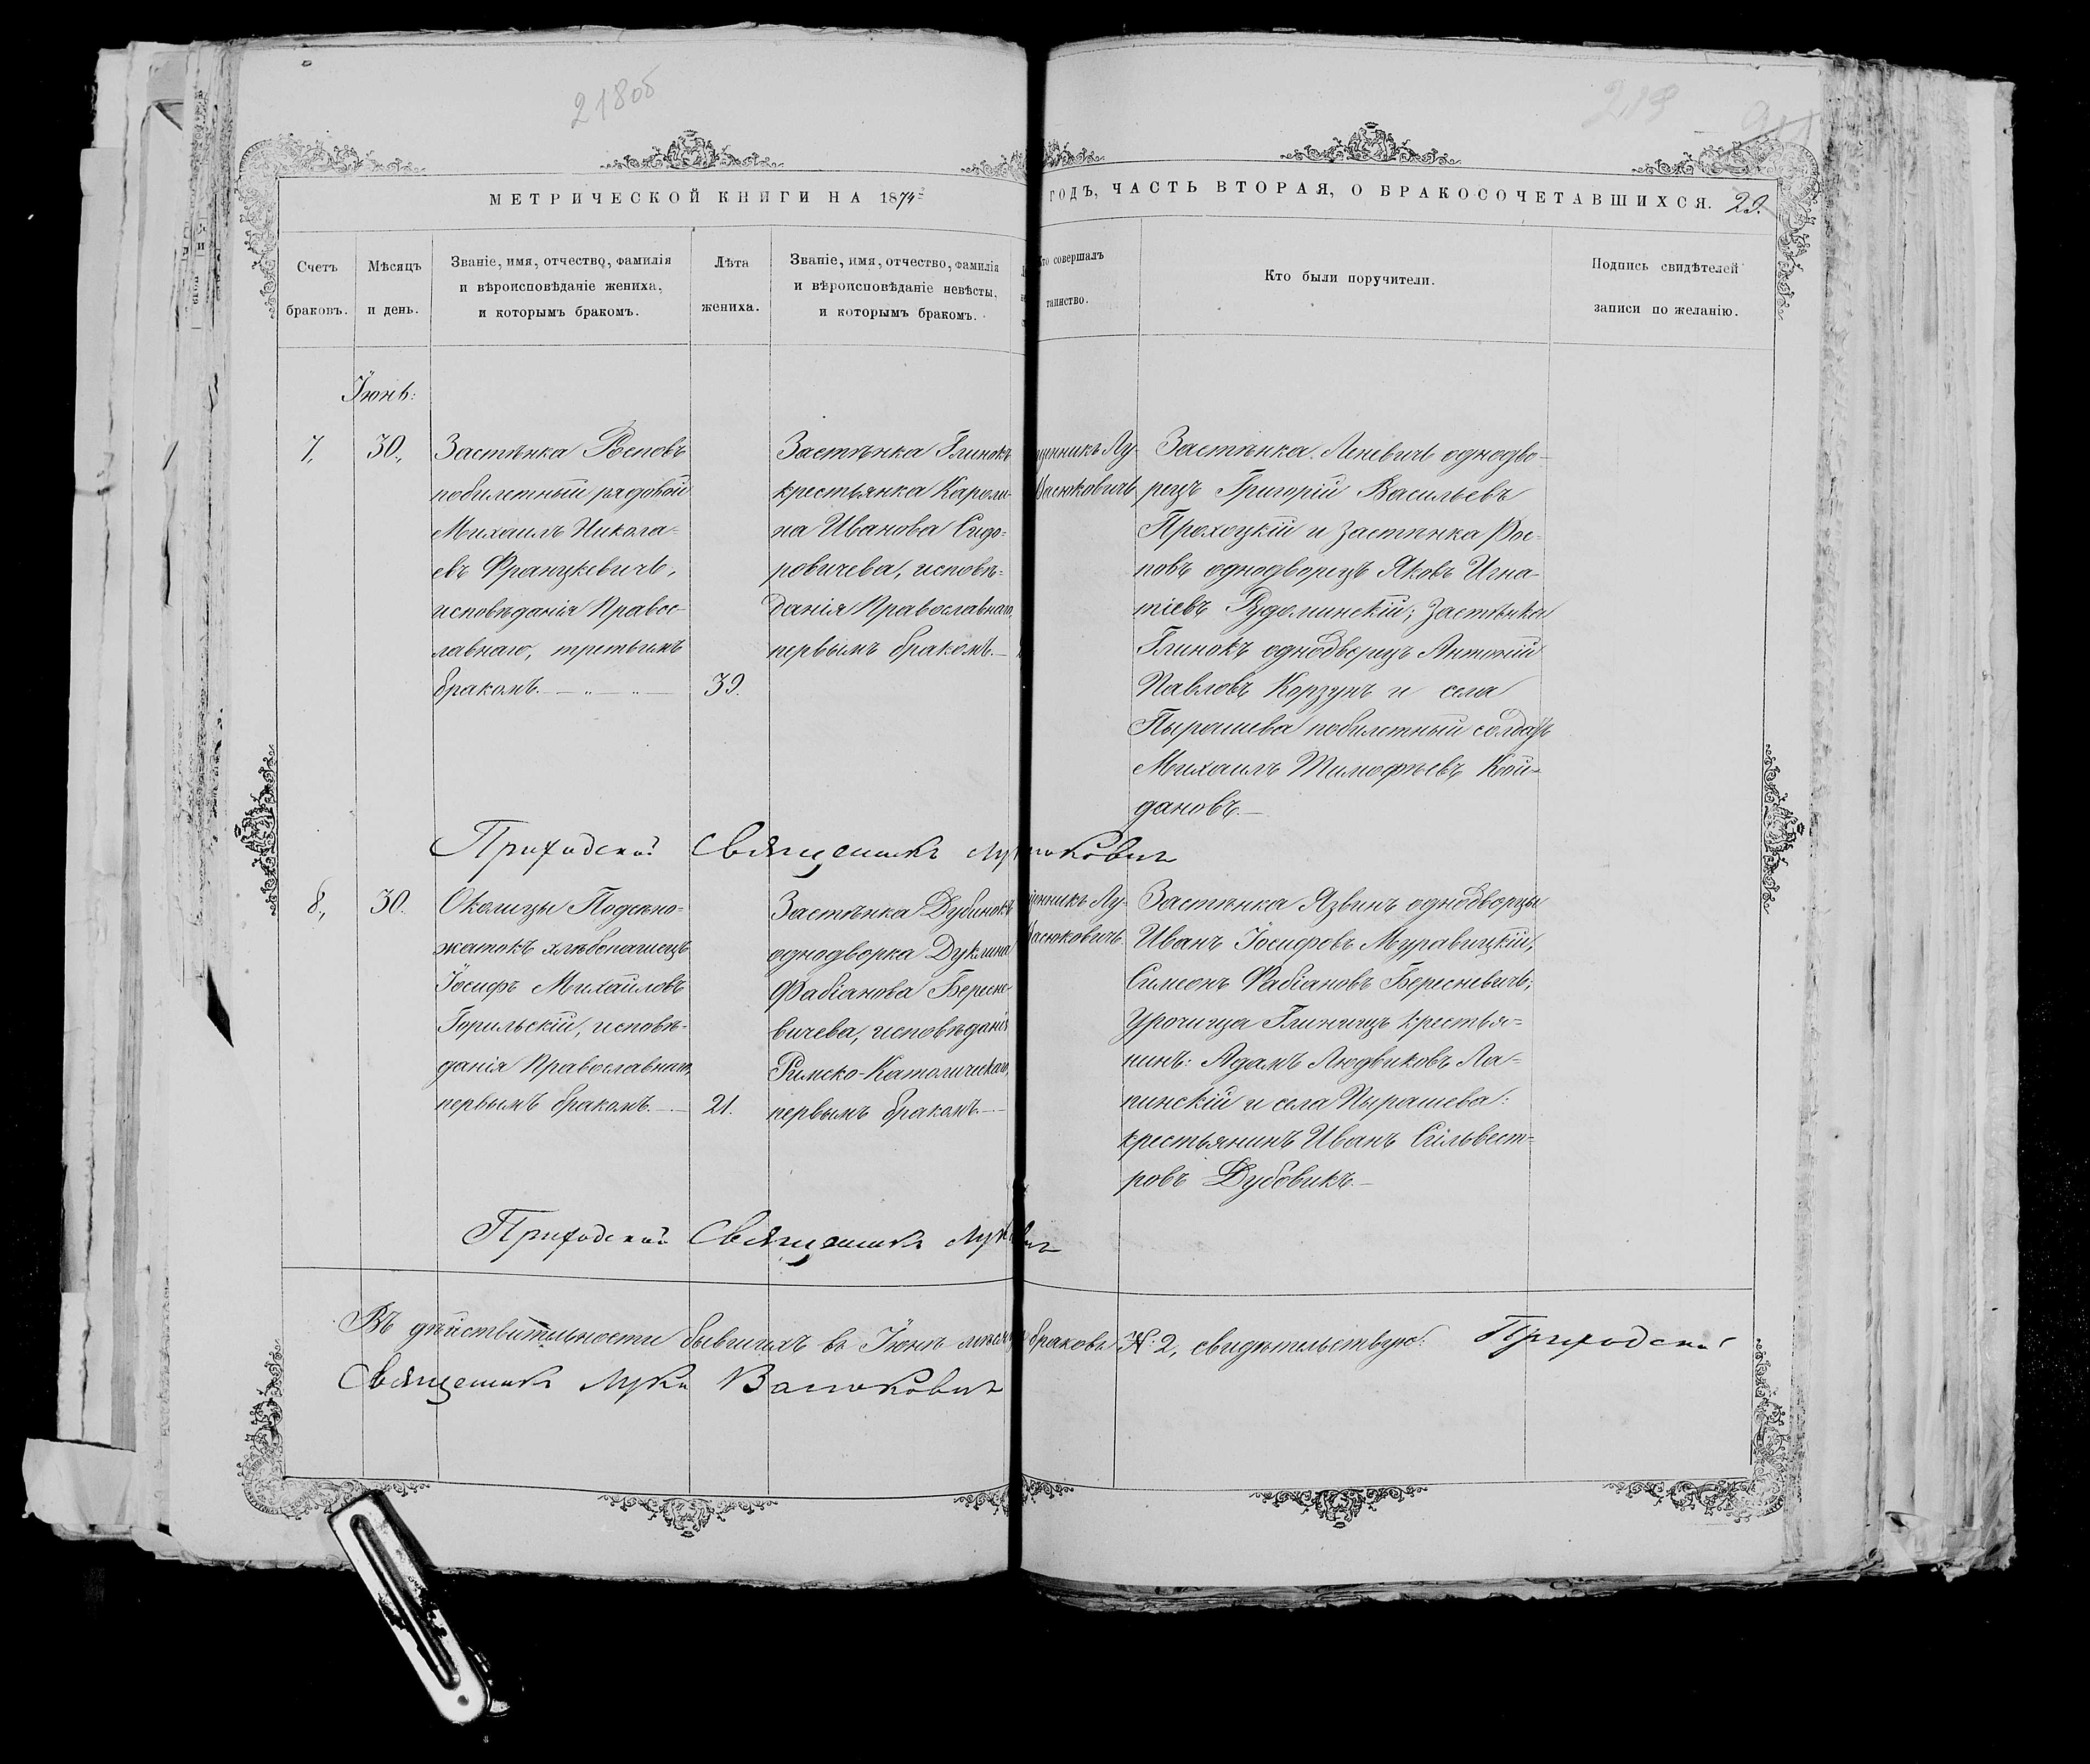 218об
219
МЕТРИЧЕСКОЙ КНИГИ НА 1874
ГОДЪ, ЧАСТЬ ВТОРАЯ, О БРАКОСОЧЕТАВШИХСЯ. 29.
Счетъ
браковъ.
Мѣсяцъ
и день.
Званіе, имя, отчество, фамилія
и вѣроисповѣданіе жениха,
и которымъ бракомъ.
Лѣта
жениха.
Званіе, имя, отчество, фамилія
и вѣроисповѣданіе невѣсты,
и которымъ бракомъ.
то совершалъ
таинство.
Кто были поручители.
Подпись свидѣтелей
записи по желанію.
Іюнь:
7, 30.,
Застѣнка Роеповъ
побилетный рядовой
Михаилъ Никола=
евъ Францкевичъ,
исповѣданія Правос-
лавнаго, третьимъ
бракомъ.
39.
Застѣнка Глинокъ
крестьянка Кароли-
на Иванова Сидо=
ровичева, исповѣ=
данія Православнаго,
первымъ бракомъ.
щенникъ Лу-
Васюковичъ
Застѣнка Леневичъ однодво-
рецъ Григорій Васильевъ
Прохоцкій и застѣнка Рос-
повъ однодворецъ Яковъ Игна-
тіевъ Рудоминскій; застѣнка
Глинокъ однодворецъ Антоній
Павловъ Корзунъ и села
Пырашева побилетный солдатъ
Михаилъ Тимофѣевъ Кой-
дановъ.
Приходской Священникъ Лу юковичъ
8., 30.
Околицы Подсѣно-
жатокъ хлѣбопашецъ
Іосифъ Михайловъ
Горильскій, исповѣ-
данія Православнаго,
первымъ бракомъ.
21.
Застѣнка Дубинокъ
однодворка Дуклина
Фабіанова Бересне-
вичева, исповѣданія
Римско-Католическаго,
первымъ бракомъ.
щенникъ Лу-
Васюковичъ.
Застѣнка Язвинъ однодворцы
Иванъ Іосифовъ Муравицкій,
Симеонъ Фабіановъ Бересневичъ;
урочища Глинищъ крестья=
нинъ: Адамъ Людвиковъ Ла=
пинскій и села Пырашева:
крестьянинъ Иванъ Сильвест=
ровъ Дубовикъ.
Приходской Священникъ Лук вичъ
Въ дѣйствительности бывшихъ въ Іюнѣ мѣсяцѣ браковъ №: 2, свидѣтельствую: Приходской
Священникъ Лука Васюковичъ